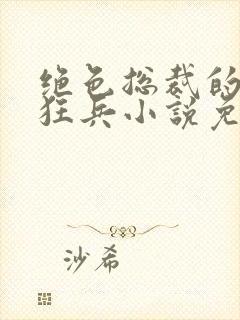 绝色总裁的
狂兵小说免
沙希